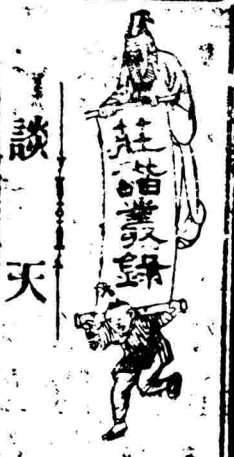 莊諧叢錄
談天